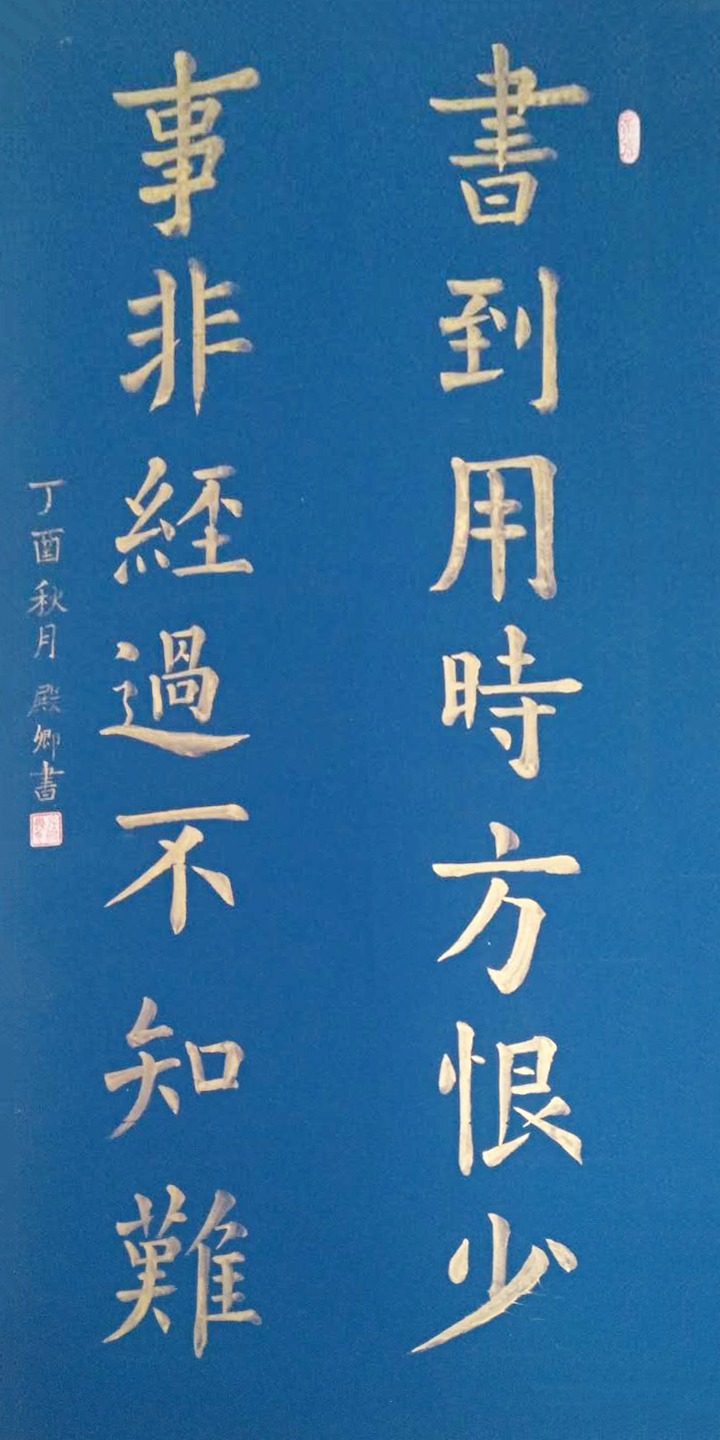 書到用時方恨少
事非經過不知難
丁酉秋月 殿卿書